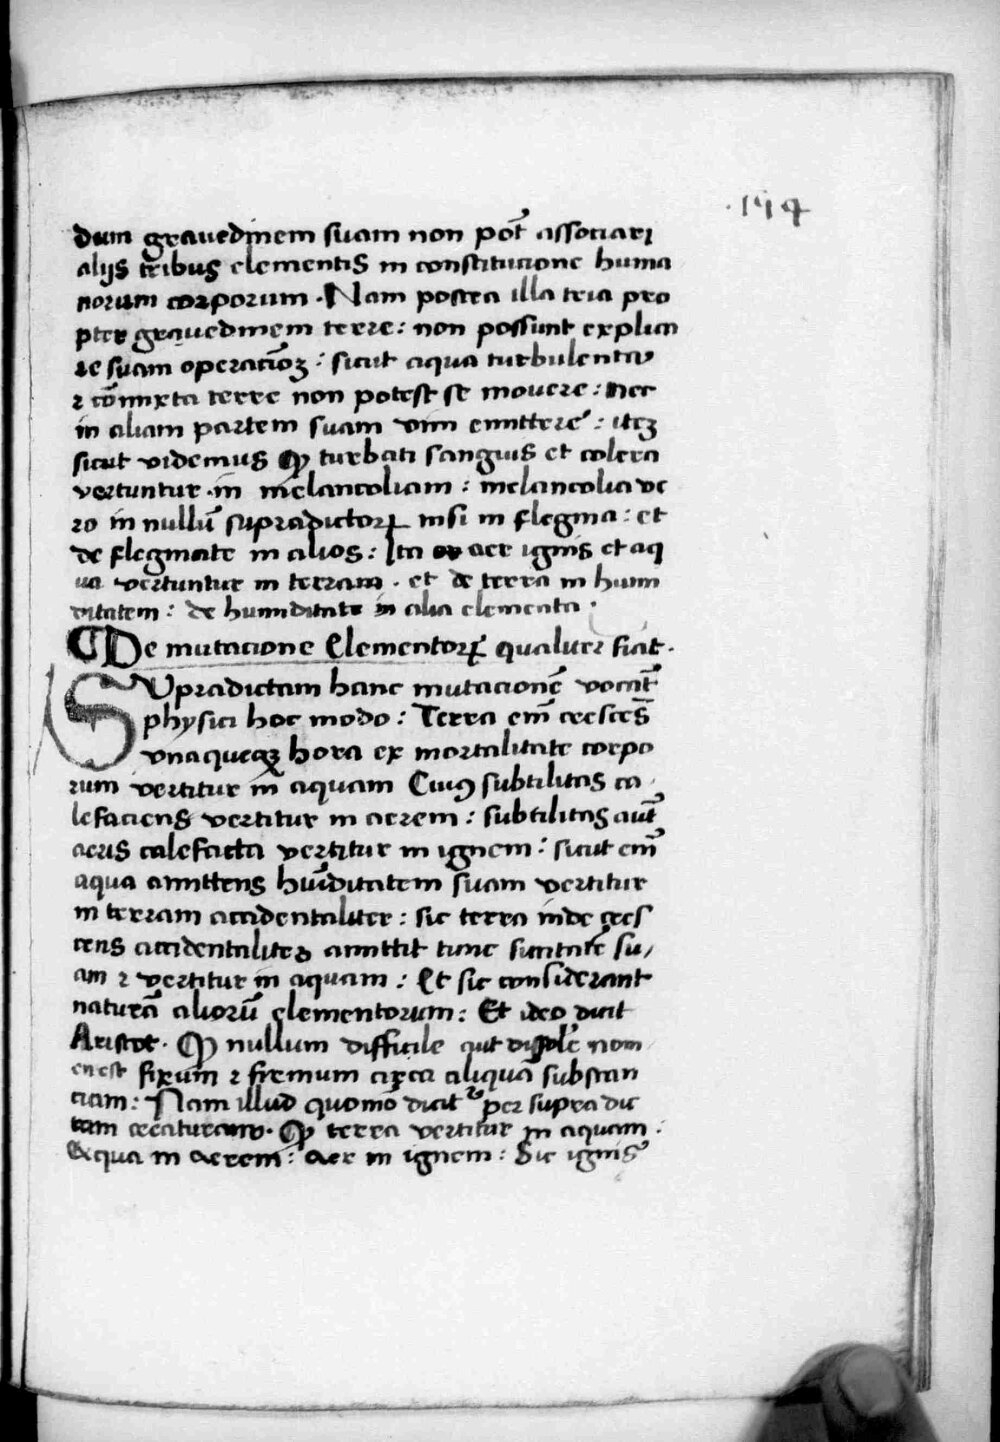 ·194
dum grauedinem suam non pot̄ associari
alijs tribus elementis in constitucione huma
norum corporum · Nam postea illa tria pro
pter grauedinem terre : non possunt explica
re suam operacioꝫ : sicut aqua turbulenta
⁊ cōmixta terre non potest se mouere : nec
in aliam partem suam vim emittere : iteꝫ
sicut videmus ꝙ turbati sanguis et colera
vertuntur in melancoliam : melancolia ve
ro in nullū supradictoꝝ nisi in flegma : et
de flegmate in alios : Ita aer ignis et aq
ua vertuntur in terram · et de terra in humi
ditatem : de humiditate in alia elementa ·
De mutacione Elementoꝝ qualiter fiat ·
SVpradictam hanc mutacionē vocāt
physici hoc modo : Terra em̄ cresces̄
vnaqueqꝫ hora ex mortalitate corpo
rum vertitur in aquam Cuiꝰ subtilitas ca
lefaciens vertitur in aerem : subtilitas aut̄
aeris calefacta vertitur in ignem : sicut em̄
aqua amittens hūiditatem suam vertitur
in terram accidentaliter : sic terra inde cres
cens accidentaliter amittit tunc siccitatē su/
am ⁊ vertitur in aquam : Et sic considerant
naturā aliorū elementorum : Et ideo dicit
Aristot · ꝙ nullum difficile aut nomen est fixum ⁊ firmum circa aliquā substan
ciam : Nam illud quomō dicit᷑ per supra dic
tam creaturam · ꝙ terra vertitur in aquam :
Aqua in aerem : aer in ignem : Sic ignis